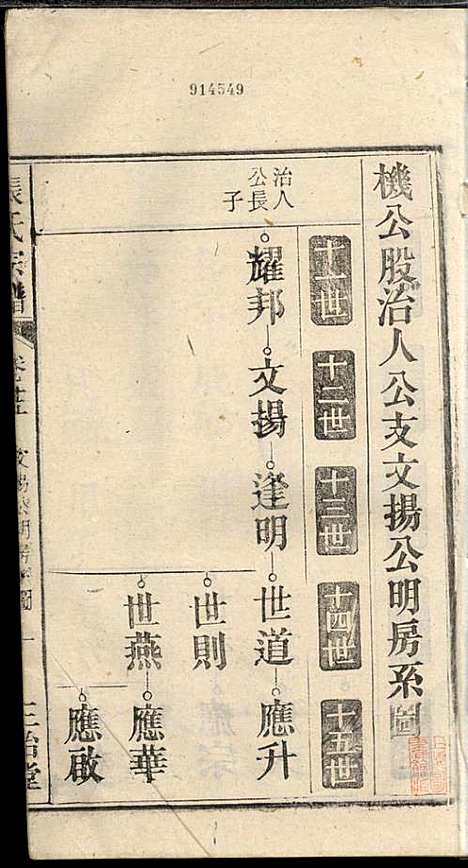 914549
機公股治人公支文揚公明房系圖
十一世
十二世
十三世
十四世
十五世
治人
公長
子
耀邦
文揚
逢明
世道
應升
世則
世燕
應華
應啟
張氏宗譜
文揚公明房系圖
一
三治堂